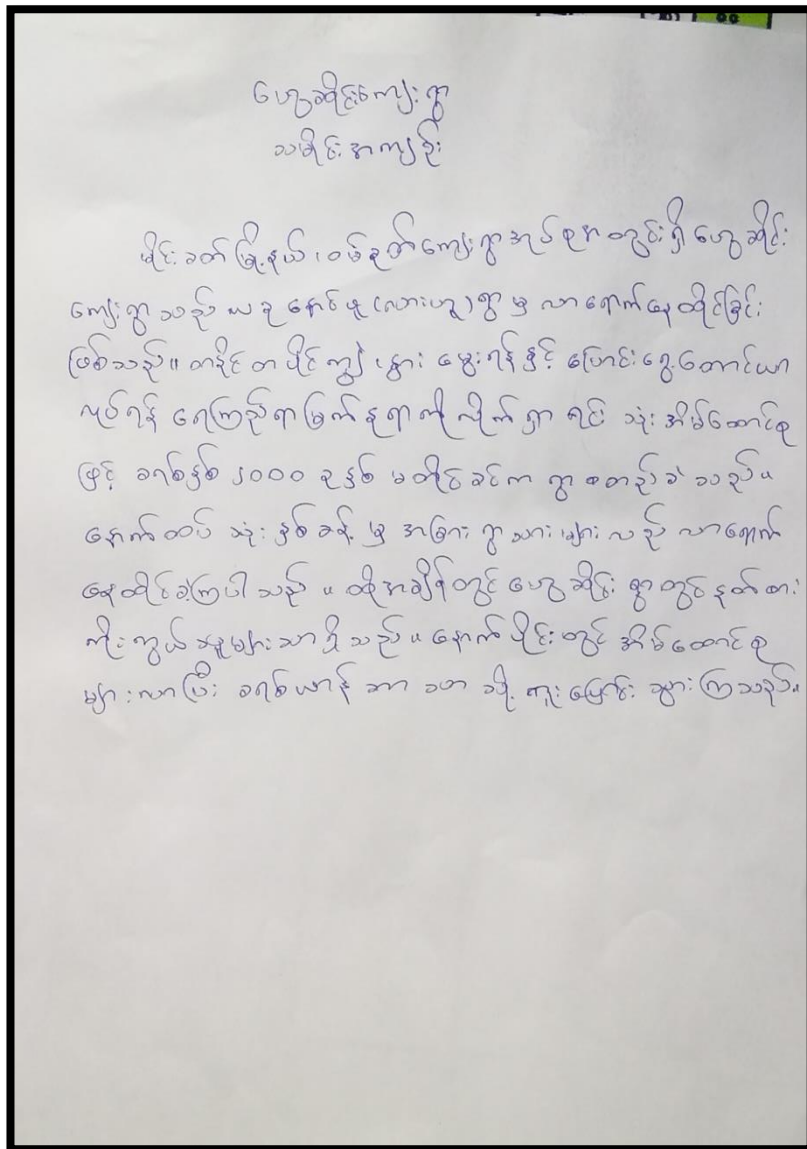 ဟွေ့ဆိုင်းကျေးရွာ
သမိုင်းအကျဉ်း
မိုင်းခတ်မြို့နယ်၊ ဝမ်နုတ်ကျေးရွာအုပ်စုအတွင်းရှိ ဟွေ့ဆိုင်း
ကျေးရွာသည် ယခု နောင်ဖူ (လားဟူ) ရွာမှ လာရောက်နေထိုင်ခြင်း
ဖြစ်သည်။ တနိုင်တပိုင်ကျွဲ၊ နွား မွေးရန်နှင့် ပြောင်းရွှေ့တောင်ယာ
လုပ်ရန် ရေကြည်ရာမြက်နုရာကို လိုက်ရှာရင်း သုံးအိမ်ထောင်စု
ဖြင့် ခရစ်နှစ် ၂၀၀၀ ခုနှစ် မတိုင်ခင်က ရွာစတည်ခဲ့သည်။
နောက်ထပ် သုံးနှစ်ခန့်မှ အခြားရွာသားများလည် လာရောက်
နေထိုင်ခဲ့ကြပါသည်။ ထိုအချိန်တွင် ဟွေ့ဆိုင်းရွာတွင် နတ်စား
ကိုးကွယ်သူများသာရှိသည်။ နောက်ပိုင်းတွင် အိမ်ထောင်စု
များလာပြီး ခရစ်ယာန်ဘာသာသို့ ကူးပြောင်းသွားကြသည်။